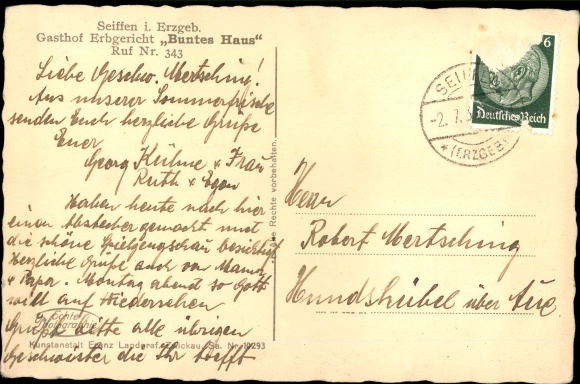 Seiffen i. Erzgeb.
Gasthof Erbgericht „Buntes Haus"
Ruf Nr. 343
Liebe Geschw. Mertsching!
Aus unserer Sommerfrische
senden Euch herzliche Grüße
Euer
Georg Kühne + Frau
Ruth + Egon
Haben heute nach hier
einen Abstecher gemacht und
die schöne Spielzeugschau besichtigt
Herzliche Grüße auch von Mama
+ Papa. Montag abend so Gott
will auf Wiedersehen
Grüßt bitte alle übrigen
Geschwister die Ihr trefft
Echte
Photographie
Kunstanstalt Franz Landgraf, Zwickau, Sa. Nr. 10293
Rechte vorbehalten.
6
Deutsches Reich
SEIFF
-2. 7. 3
* (ERZGEB)
Herrn
Robert Mertsching
Hundshübel über Aue